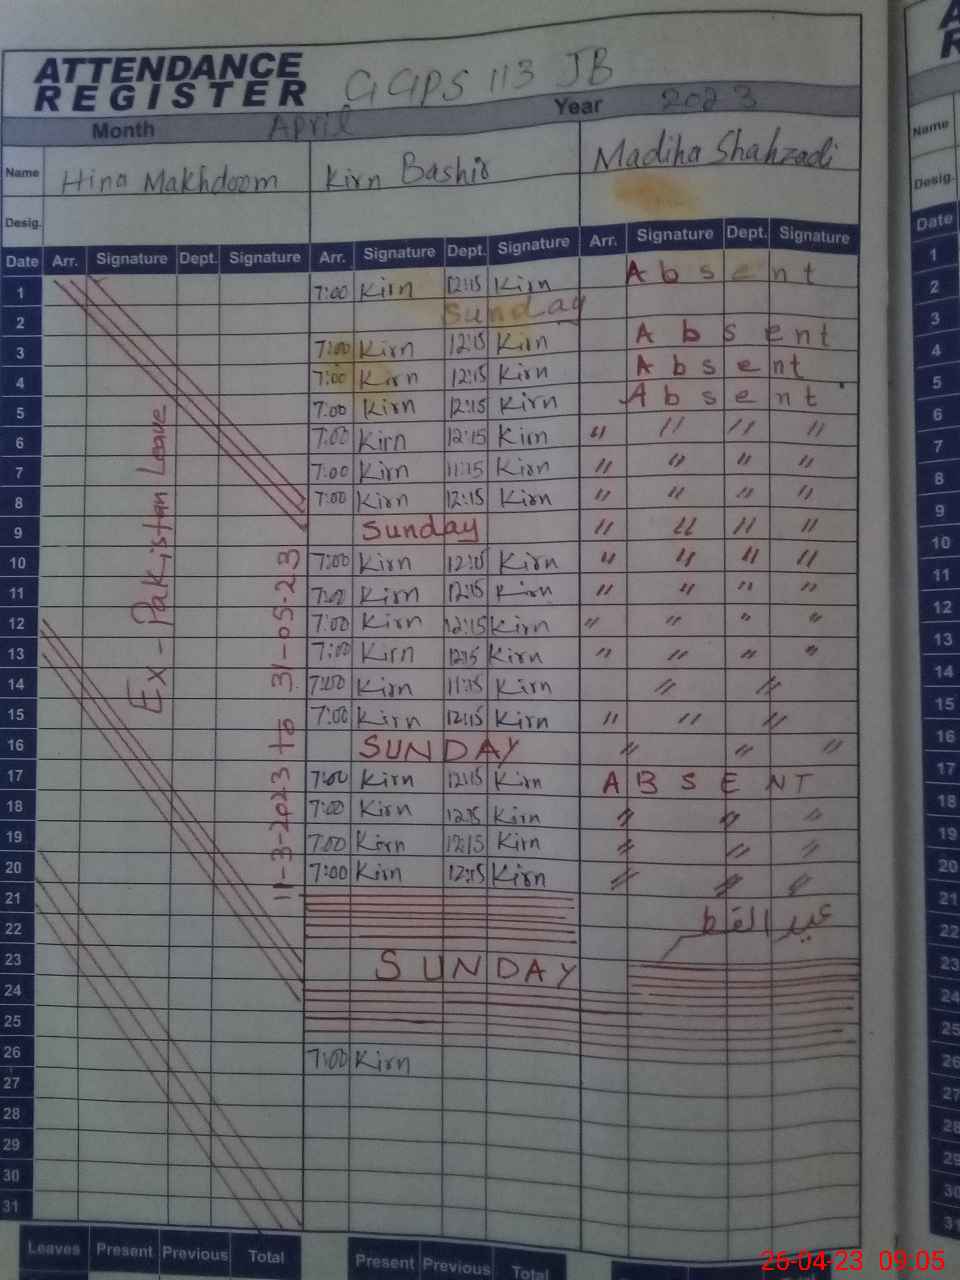 ATTENDANCE
REGISTER
GGPS 113 JB
Month April Year 2023
Name Hina Makhdoom Kirn Bashir Madiha Shahzadi Name
Desig. Desig.
Date Arr. Signature Dept. Signature Arr. Signature Dept. Signature Arr. Signature Dept. Signature Date
1 7:00 Kirn 12:15 Kirn Absent 1
2 Sunday 2
3 7:00 Kirn 12:15 Kirn Absent 3
4 7:00 Kirn 12:15 Kirn Absent 4
5 7:00 Kirn 12:15 Kirn Absent 5
6 7:00 Kirn 12:15 Kirn // // // // 6
7 7:00 Kirn 11:15 Kirn // // // // 7
8 7:00 Kirn 12:15 Kirn // // // // 8
9 Sunday // // // // 9
10 7:00 Kirn 12:15 Kirn // // // // 10
11 7:00 Kirn 12:15 Kirn // // // // 11
12 7:00 Kirn 12:15 Kirn // // // // 12
13 7:00 Kirn 12:15 Kirn // // // // 13
14 7:00 Kirn 11:15 Kirn // // 14
15 7:00 Kirn 12:15 Kirn // // // 15
16 SUNDAY // // // 16
17 7:00 Kirn 12:15 Kirn ABSENT 17
18 7:00 Kirn 12:15 Kirn // // // 18
19 7:00 Kirn 12:15 Kirn // // // 19
20 7:00 Kirn 12:15 Kirn // // // 20
21 عید الفطر 21
22 22
23 SUNDAY 23
24 24
25 25
26 7:00 Kirn 26
27 27
28 28
29 29
30 30
31 31
Ex-Pakistan Leave
11-3-2023 to 31-05-23
Leaves Present Previous Total Present Previous Total
26-04-23 09:05